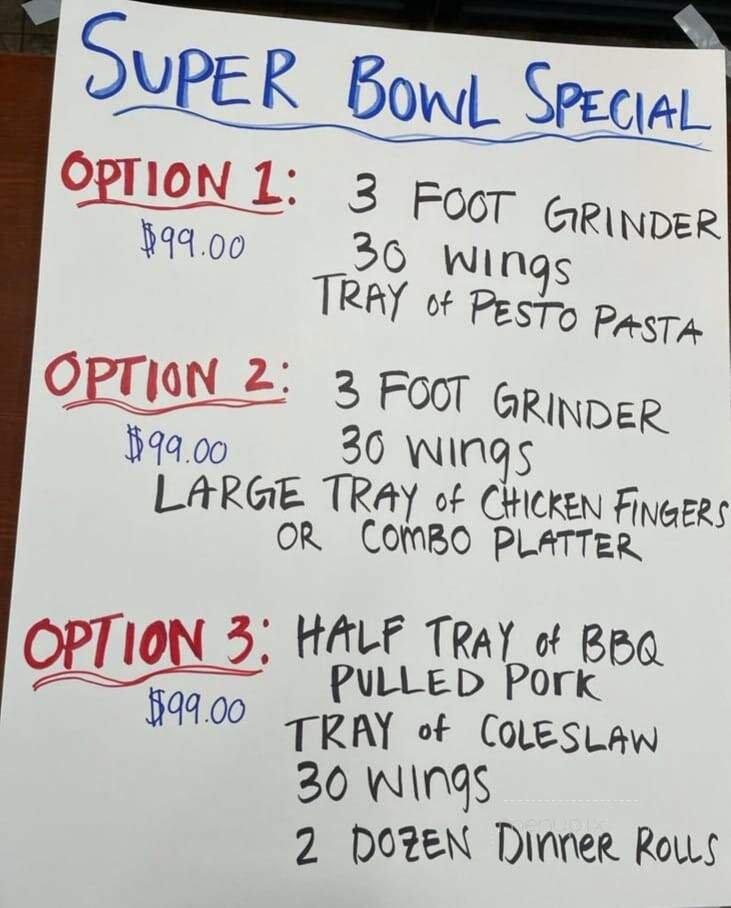 SUPER BOWL SPECIAL
OPTION 1: 3 FOOT GRINDER
$99.00 30 WINgS
TRAY of PESTO PASTA
OPTION 2: 3 FOOT GRINDER
$99.00 30 WINgS
LARGE TRAY of CHICKEN FINGERS
OR COMBO PLATTER
OPTION 3: HALF TRAY of BBQ
PULLED PORK
$99.00
TRAY of COLESLAW
30 WINgS
2 DOZEN DINNER ROLLS